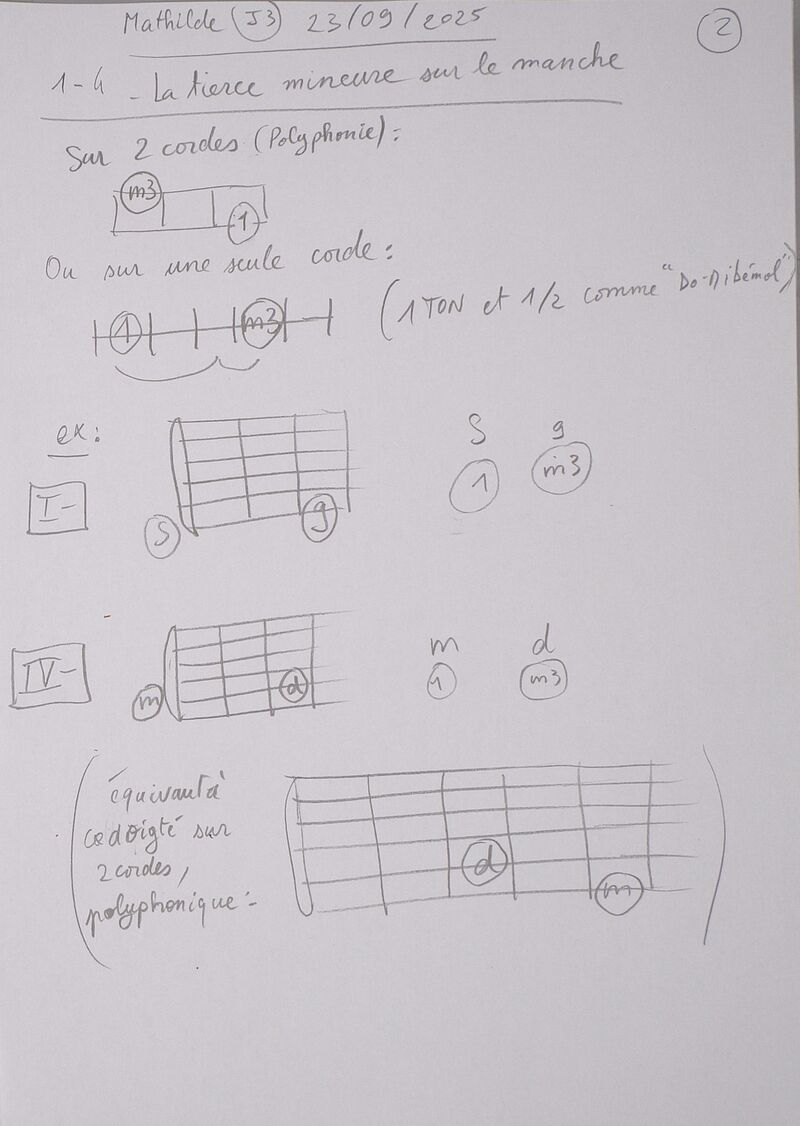 Mathilde (J3) 23/09/2025
2
1-4 - La tierce mineure sur le manche
Sur 2 cordes (Polyphonie) :
m3
1
Ou sur une seule corde :
1 m3 (1 TON et 1/2 comme "Do-Mibémol")
ex :
S g
1 m3
I-
S g
m d
IV-
m d 1 m3
équivaut à
ce doigté sur
2 cordes,
polyphonique :-
d
m